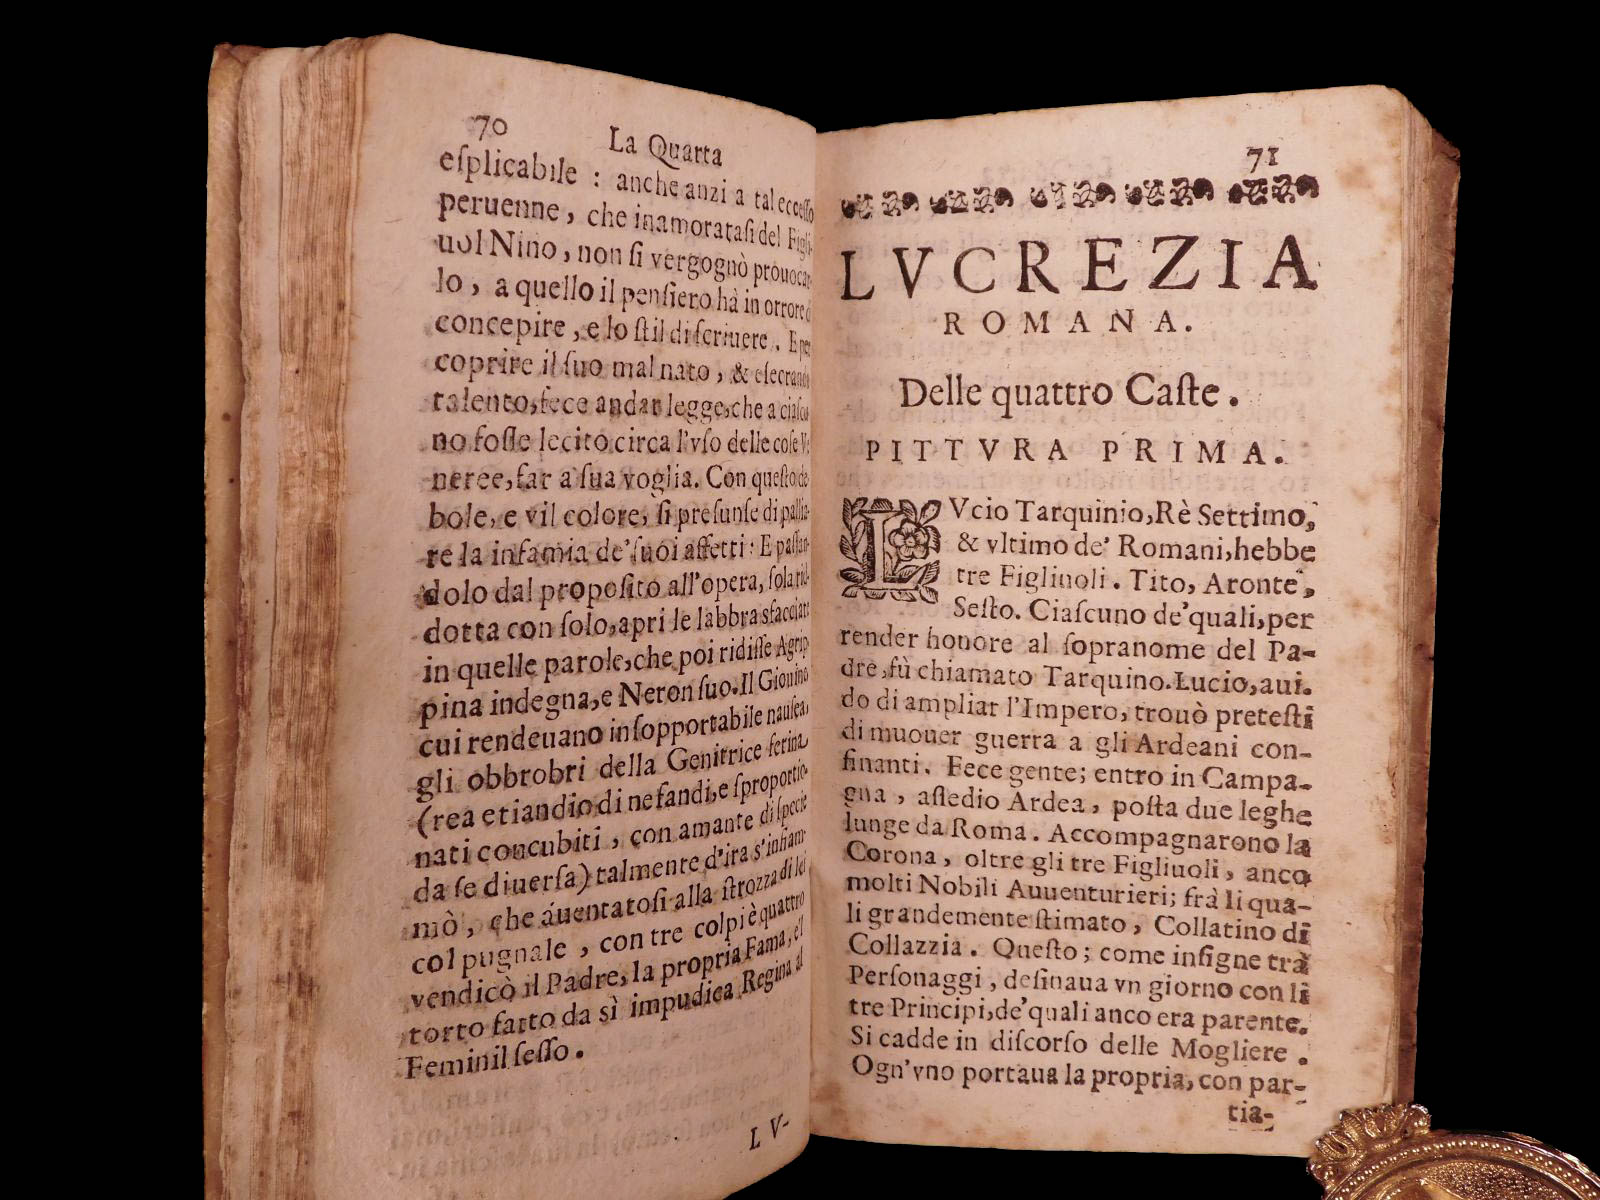 70
La Quarta
eſplicabile : anche anzi a tal ecceſſo
peruenne, che inamorataſi del Figli-
uol Nino, non ſi vergognò prouocar-
lo, a quello il penſiero hà in orrore
concepire, e lo ſtil di ſcriuere. E per
coprire il ſuo mal nato, & eſecrando
talento, fece andar legge, che a ciaſcu
no foſſe lecito circa l'vſo delle coſe Ve
neree, far a ſua voglia. Con queſto de
bole, e vil colore, ſi preſunſe di pallia-
re la infamia de' ſuoi affetti : E paſſan-
dolo dal propoſito all'opera, ſola rid-
dotta con ſolo, apri le labbra sfacciate
in quelle parole, che poi ridiſſe Agrip
pina indegna, e Neron ſuo. Il Giouino
cui rendeuano inſopportabile nauſea,
gli obbrobri della Genitrice ferina,
(rea etiandio di nefandi, e ſproportio-
nati concubiti, con amante di ſpecie
da ſe diuerſa) talmente d'ira s'infiam-
mò, che auentatoſi alla ſtrozza di lei
col pugnale, con tre colpi è quattro
vendicò il Padre, la propria Fama, el
torto fatto da sì impudica Regina al
Feminil ſeſſo.
L V-
71
LVCREZIA
ROMANA.
Delle quattro Caſte.
PITTVRA PRIMA.
LVcio Tarquinio, Rè Settimo,
& vltimo de' Romani, hebbe
tre Figliuoli. Tito, Aronte,
Seſto. Ciaſcuno de' quali, per
render honore al ſopranome del Pa-
dre, fù chiamato Tarquino. Lucio, aui-
do di ampliar l'Impero, trouò preteſti
di muouer guerra a gli Ardeani con-
finanti. Fece gente; entro in Campa-
gna, aſſedio Ardea, poſta due leghe
lunge da Roma. Accompagnarono la
Corona, oltre gli tre Figliuoli, anco
molti Nobili Auuenturieri; frà li qua-
li grandemente ſtimato, Collatino di
Collazzia. Queſto; come inſigne trà
Perſonaggi, deſinaua vn giorno con li
tre Principi, de' quali anco era parente.
Si cadde in diſcorſo delle Mogliere.
Ogn'vno portaua la propria, con par-
tia-